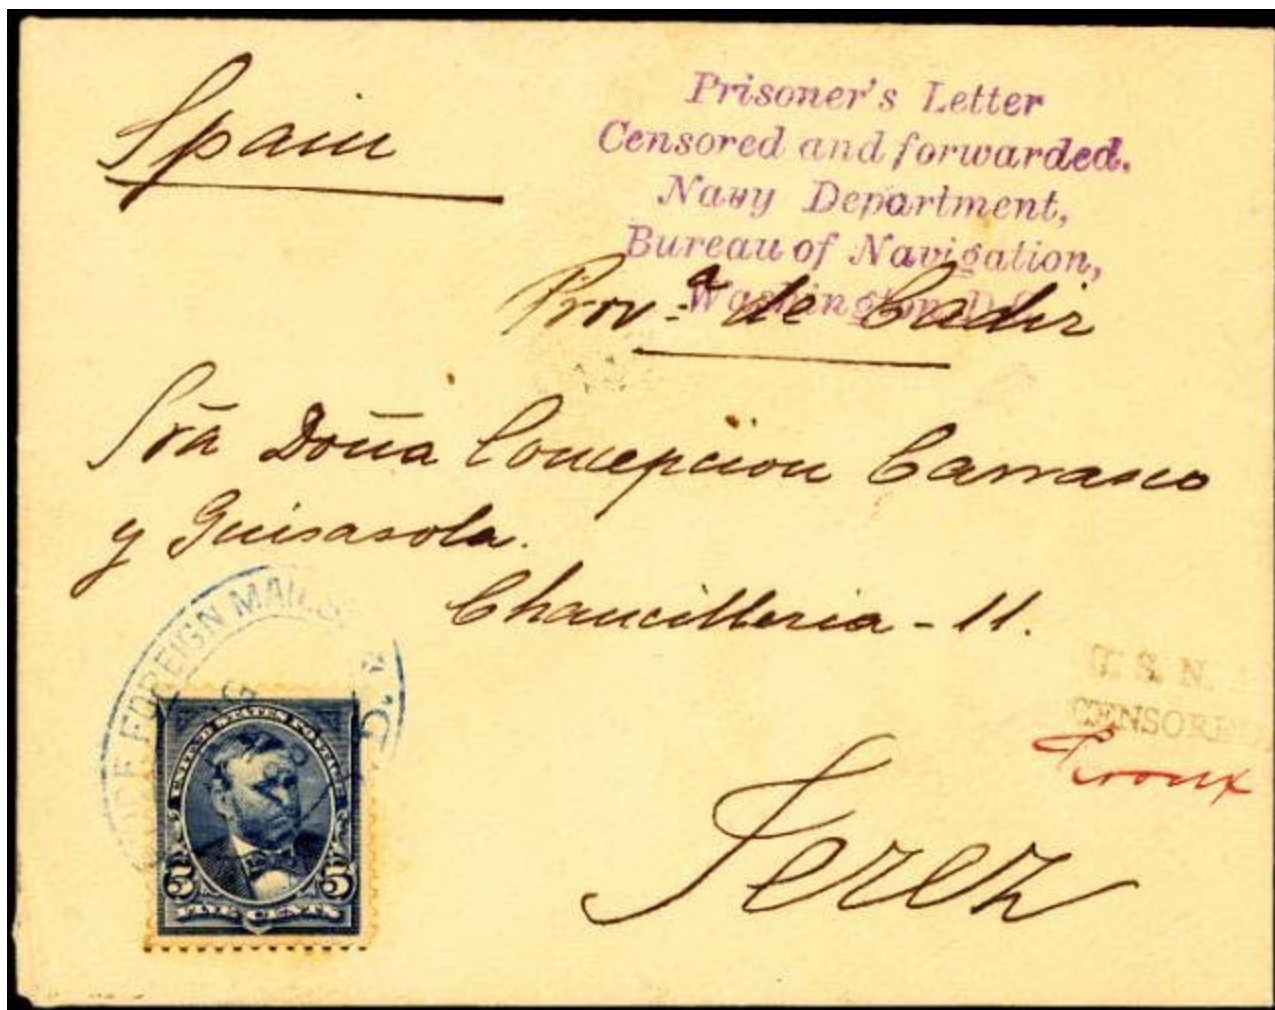 Spain
Prisoner's Letter
Censored and forwarded.
Navy Department,
Bureau of Navigation,
Washington D.C.
Prov.ª de Cadiz
Sra Doña Concepcion Carrasco
y Guisasola.
Chancilleria - 11.
Jerez
U. S. N.
CENSORED
FOREIGN MAILS
UNITED STATES POSTAGE
5 5
FIVE CENTS